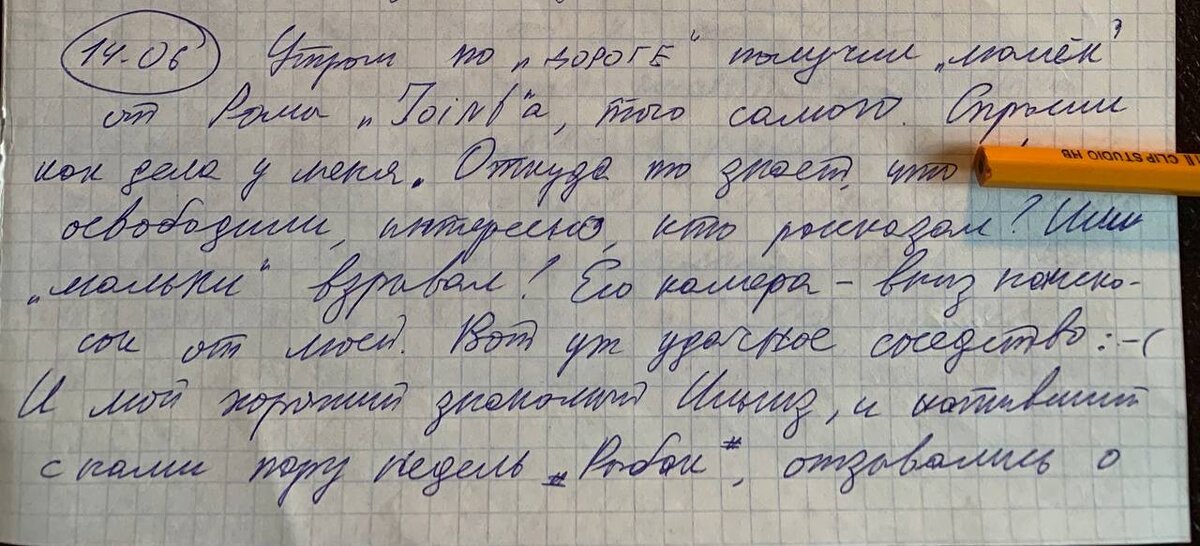 14.06 Утром по „ДОРОГЕ" получил „малёк"
от Рома „Joint"а, того самого. Спросил
как дела у меня. Откуда то знает, что
освободили, интересно, кто рассказал? Или
„мальки" взрывал! Его камера – вниз наиско-
сок от моей. Вот уж удачное соседство :-(
И мой хороший знакомый Ильгиз, и катавший
с нами пару недель „Рыбак", отзывались о
CLIP STUDIO HB